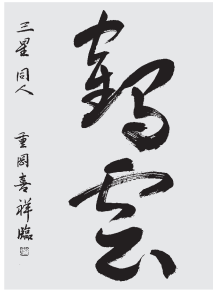 鶴雲
三星同人 重岡喜祥臨